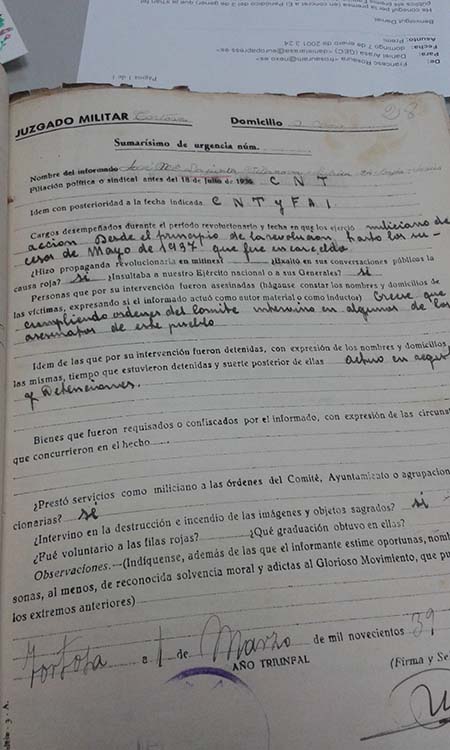 De: Francesc Rosaura
Para: Daniel Arasa (GEC)
Fecha: domingo 7 de enero de 2001 3:24
Asunto:
Benvolgut Daniel:
Página 1 de 1
28
JUZGADO MILITAR Tortosa Domicilio
Sumarísimo de urgencia núm.
Nombre del informado José Mª
Filiación política o sindical antes del 18 de Julio de 1936 C N T
Idem con posterioridad a la fecha indicada C N T y F A I
Cargos desempeñados durante el período revolucionario y fecha en que los ejerció miliciano de
accion Desde el principio de la revolucion hasta los su-
cesos de Mayo de 1937 que fue encarcelado
¿Hizo propaganda revolucionaria en mítines? ¿Exaltó en sus conversaciones públicas la
causa roja? si ¿Insultaba a nuestro Ejército nacional o a sus Generales? si
Personas que por su intervención fueron asesinadas (hágause constar los nombres y domicilios de
las víctimas, expresando si el informado actuó como autor material o como inductor) Creese que
cumpliendo ordenes del Comite intervino en algunos de los
asesinatos de este pueblo
Idem de las que por su intervención fueron detenidas, con expresión de los nombres y domicilios
las mismas, tiempo que estuvieron detenidas y suerte posterior de ellas actuo en
y Detenciones.
Bienes que fueron requisados o confiscados por el informado, con expresión de las circuns
que concurrieron en el hecho
¿Prestó servicios como miliciano a las órdenes del Comité, Ayuntamiento o agrupacion
cionarias? si
¿Intervino en la destrucción e incendio de las imágenes y objetos sagrados? si
¿Fué voluntario a las filas rojas? ¿Qué graduación obtuvo en ellas?
Observaciones.—(Indíquense, además de las que el informante estime oportunas, nom
sonas, al menos, de reconocida solvencia moral y adictas al Glorioso Movimiento, que pu
los extremos anteriores)
Tortosa a 1 de Marzo de mil novecientos 39
AÑO TRIUNFAL
(Firma y Se
3 - A.